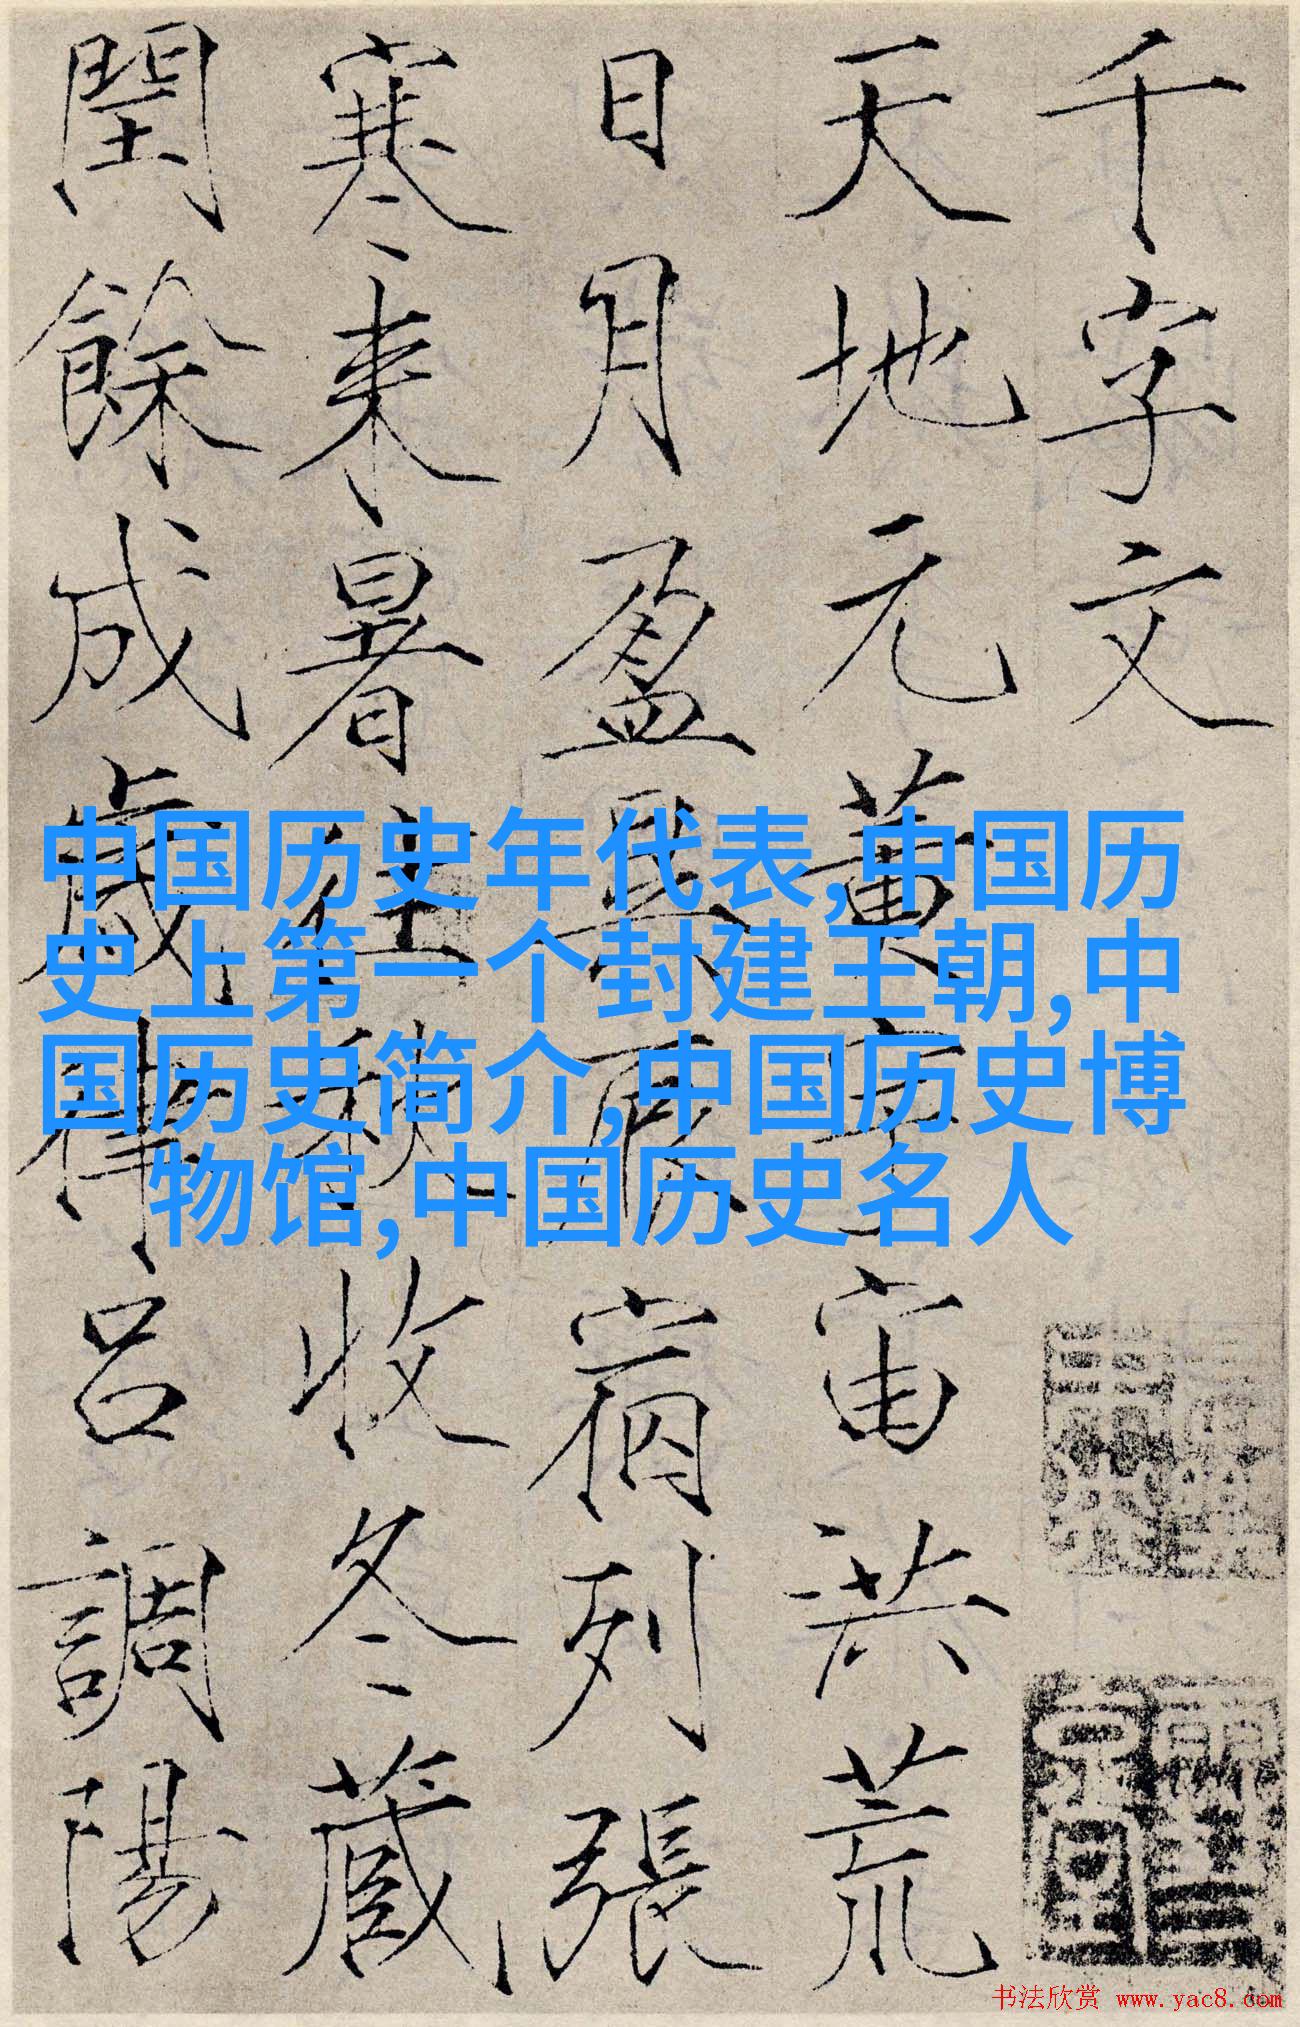 千字文
天地元黄宇宙洪荒
日月盈昃辰宿列張
寒来暑往秋收冬蔵
閏餘成歲律吕調陽
中国历史年代表,中国历
史上第一个封建王朝,中
国历史简介,中国历史博
物馆,中国历史名人
书法欣赏 www.yac8.com